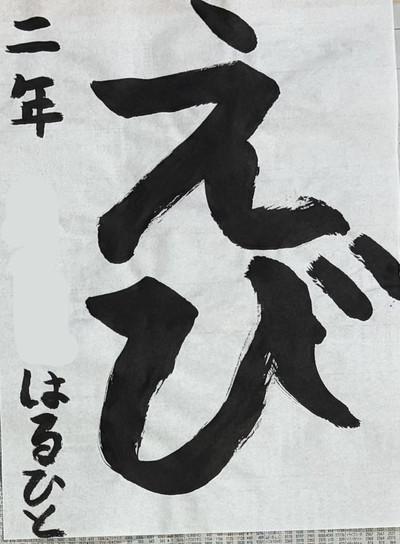 えび
二年
はるひと